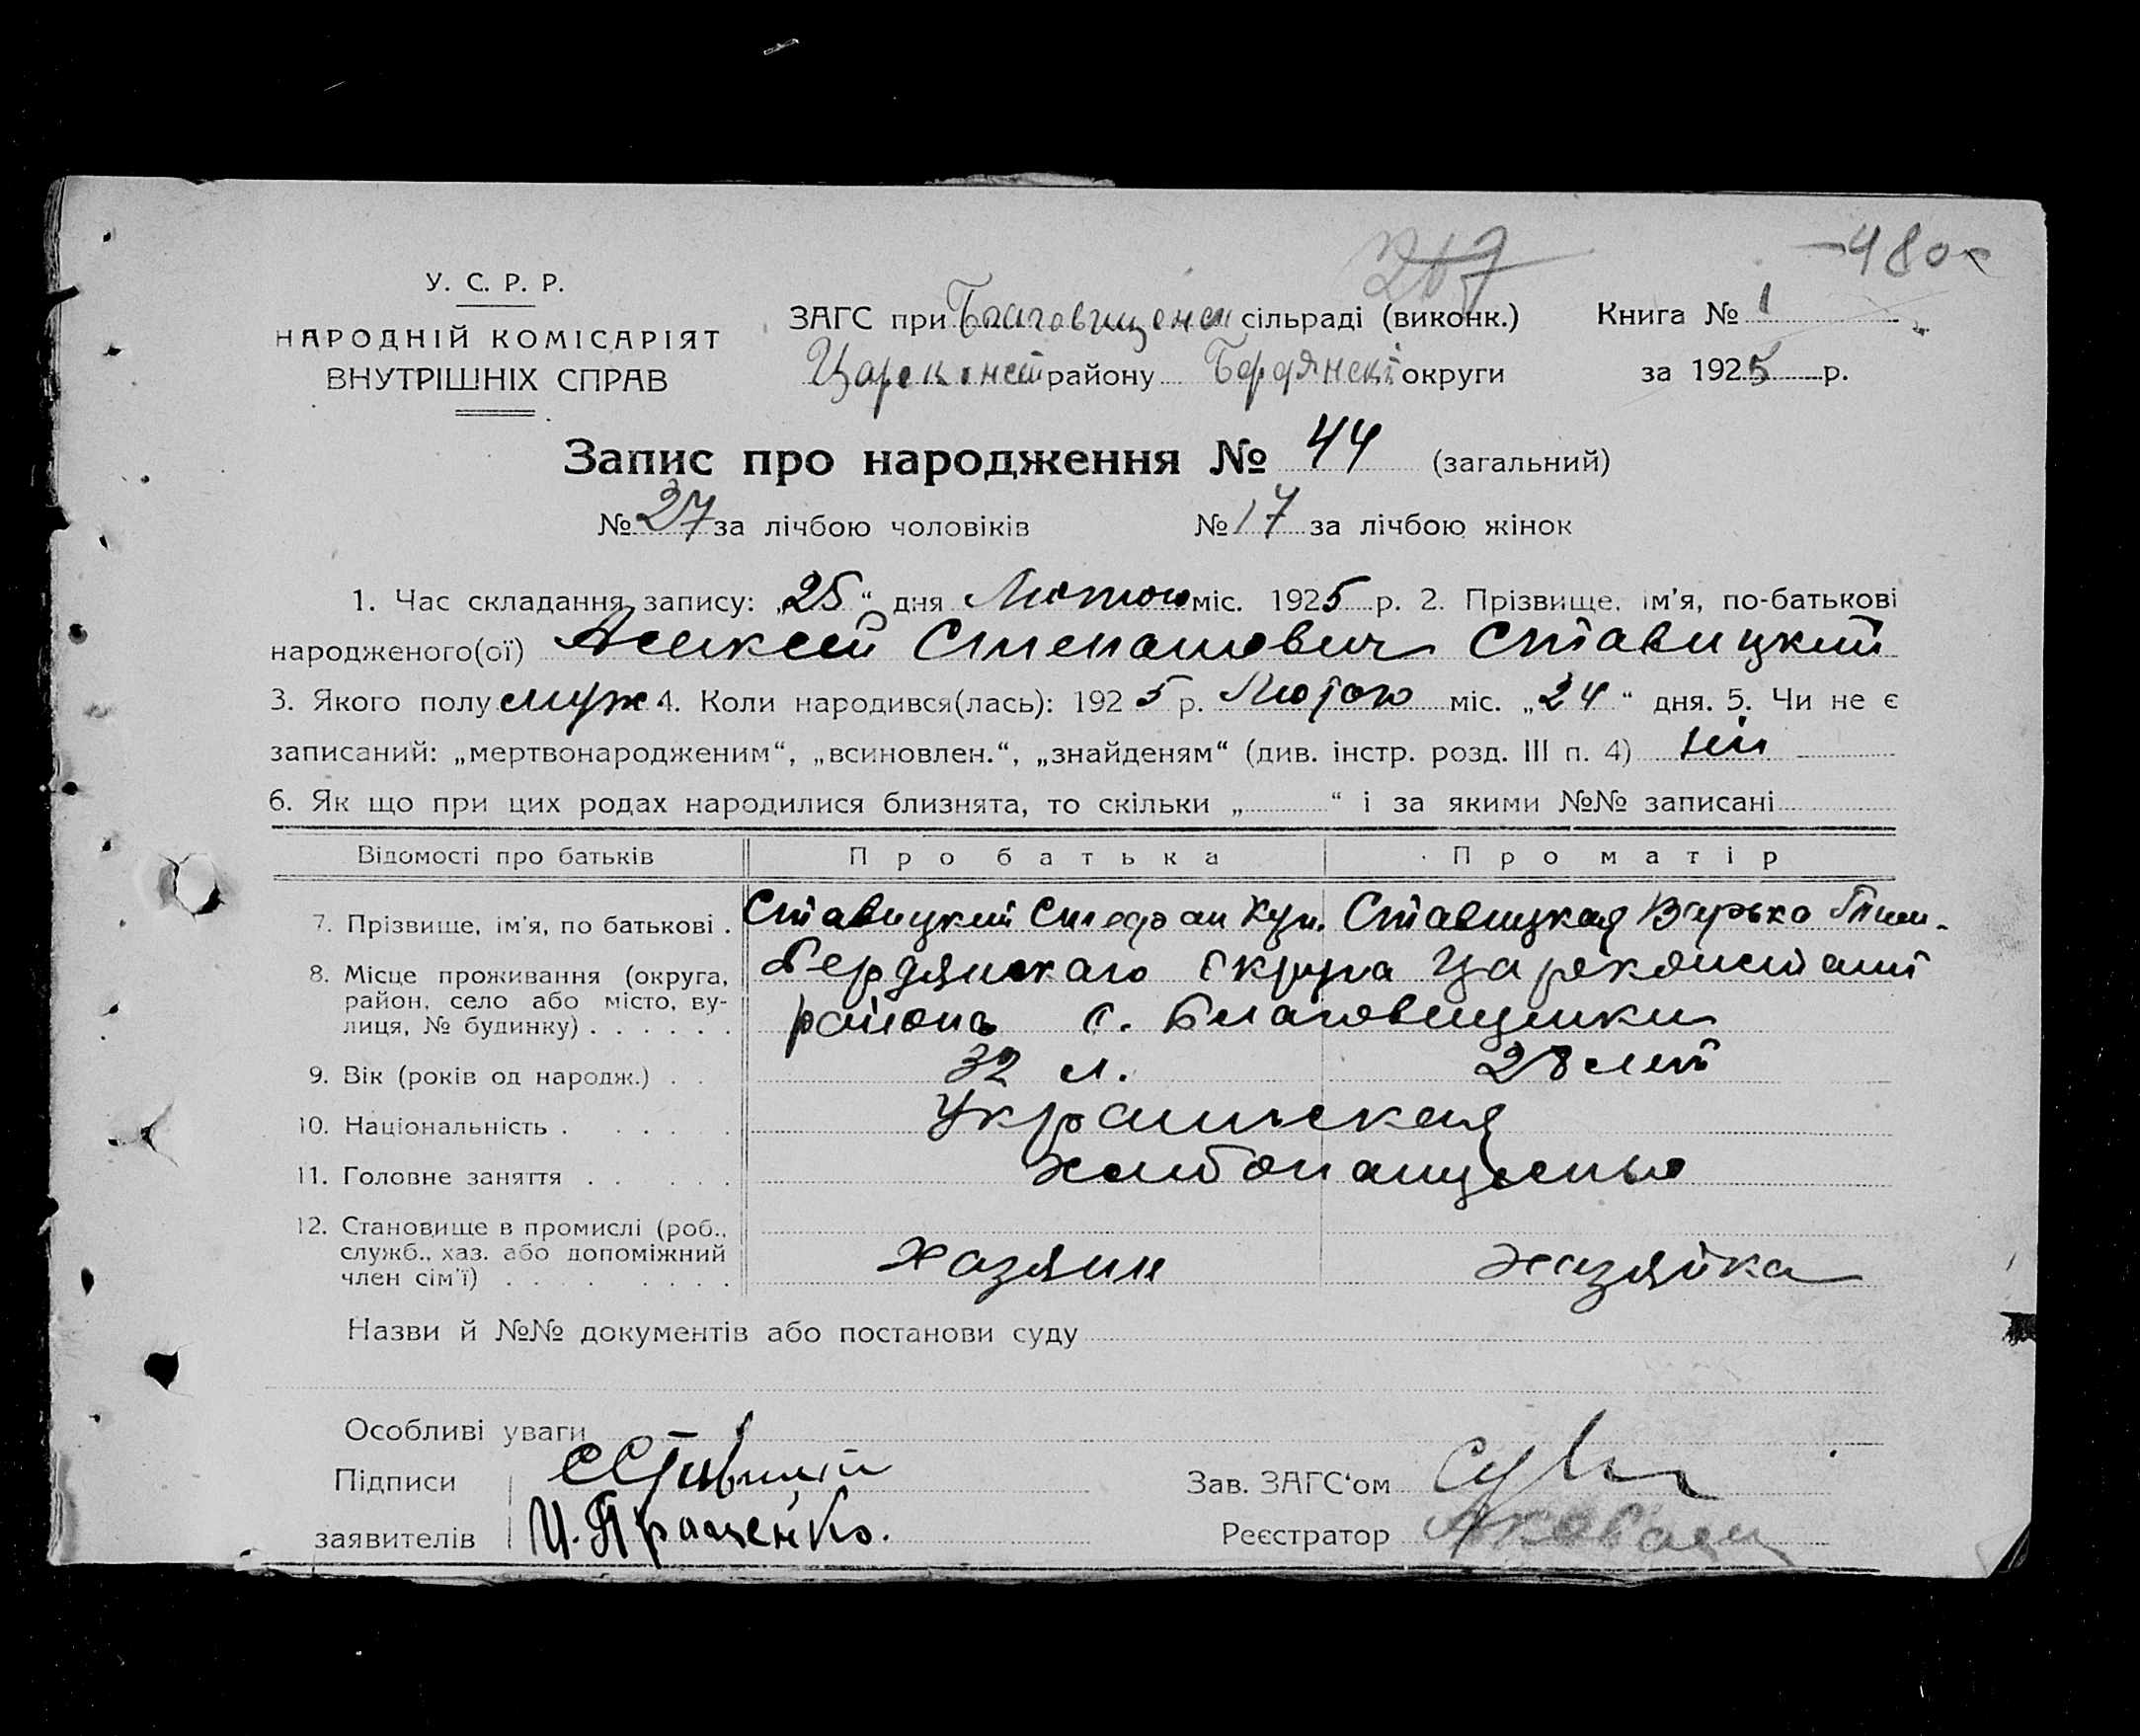 -480-
У. С. Р. Р.
НАРОДНІЙ КОМІСАРІЯТ
ВНУТРІШНІХ СПРАВ
ЗАГС при Благовищенск сільраді (виконк.) Книга № 1
Цареконст району Бердянскі округи за 1925 р.
Запис про народження № 44 (загальний)
№ 27 за лічбою чоловіків № 17 за лічбою жінок
1. Час складання запису: „25“ дня Лютого міс. 1925 р. 2. Прізвище, ім’я, по-батькові
народженого(ої) Алексей Степанович Ставицкий
3. Якого полу муж 4. Коли народився(лась): 1925 р. Лютого міс. „24“ дня. 5. Чи не є
записаний: „мертвонародженим“, „всиновлен.“, „знайденям“ (див. інстр. розд. III п. 4) ні
6. Як що при цих родах народилися близнята, то скільки „ “ і за якими №№ записані
Відомості про батьків Про батька Про матір
7. Прізвище, ім’я, по батькові . Ставицкий Стефан Ставицкая Варька
8. Місце проживання (округа, Бердянскаго Округа Цареконстант
район, село або місто, ву-
лиця, № будинку) . . . . . . района с. Благовещенки
9. Вік (років од народж.) . . 32 л. 28 лет
10. Національність . . . . . Украинская
11. Головне заняття . . . . . хлебопащество
12. Становище в промислі (роб.,
служб., хаз. або допоміжний
член сім’ї) . . . . . . . . Хазяин хазяйка
Назви й №№ документів або постанови суду
Особливі уваги
Підписи ССтавицкій Зав. ЗАГС‘ом
заявителів И. Пращенко. Реєстратор